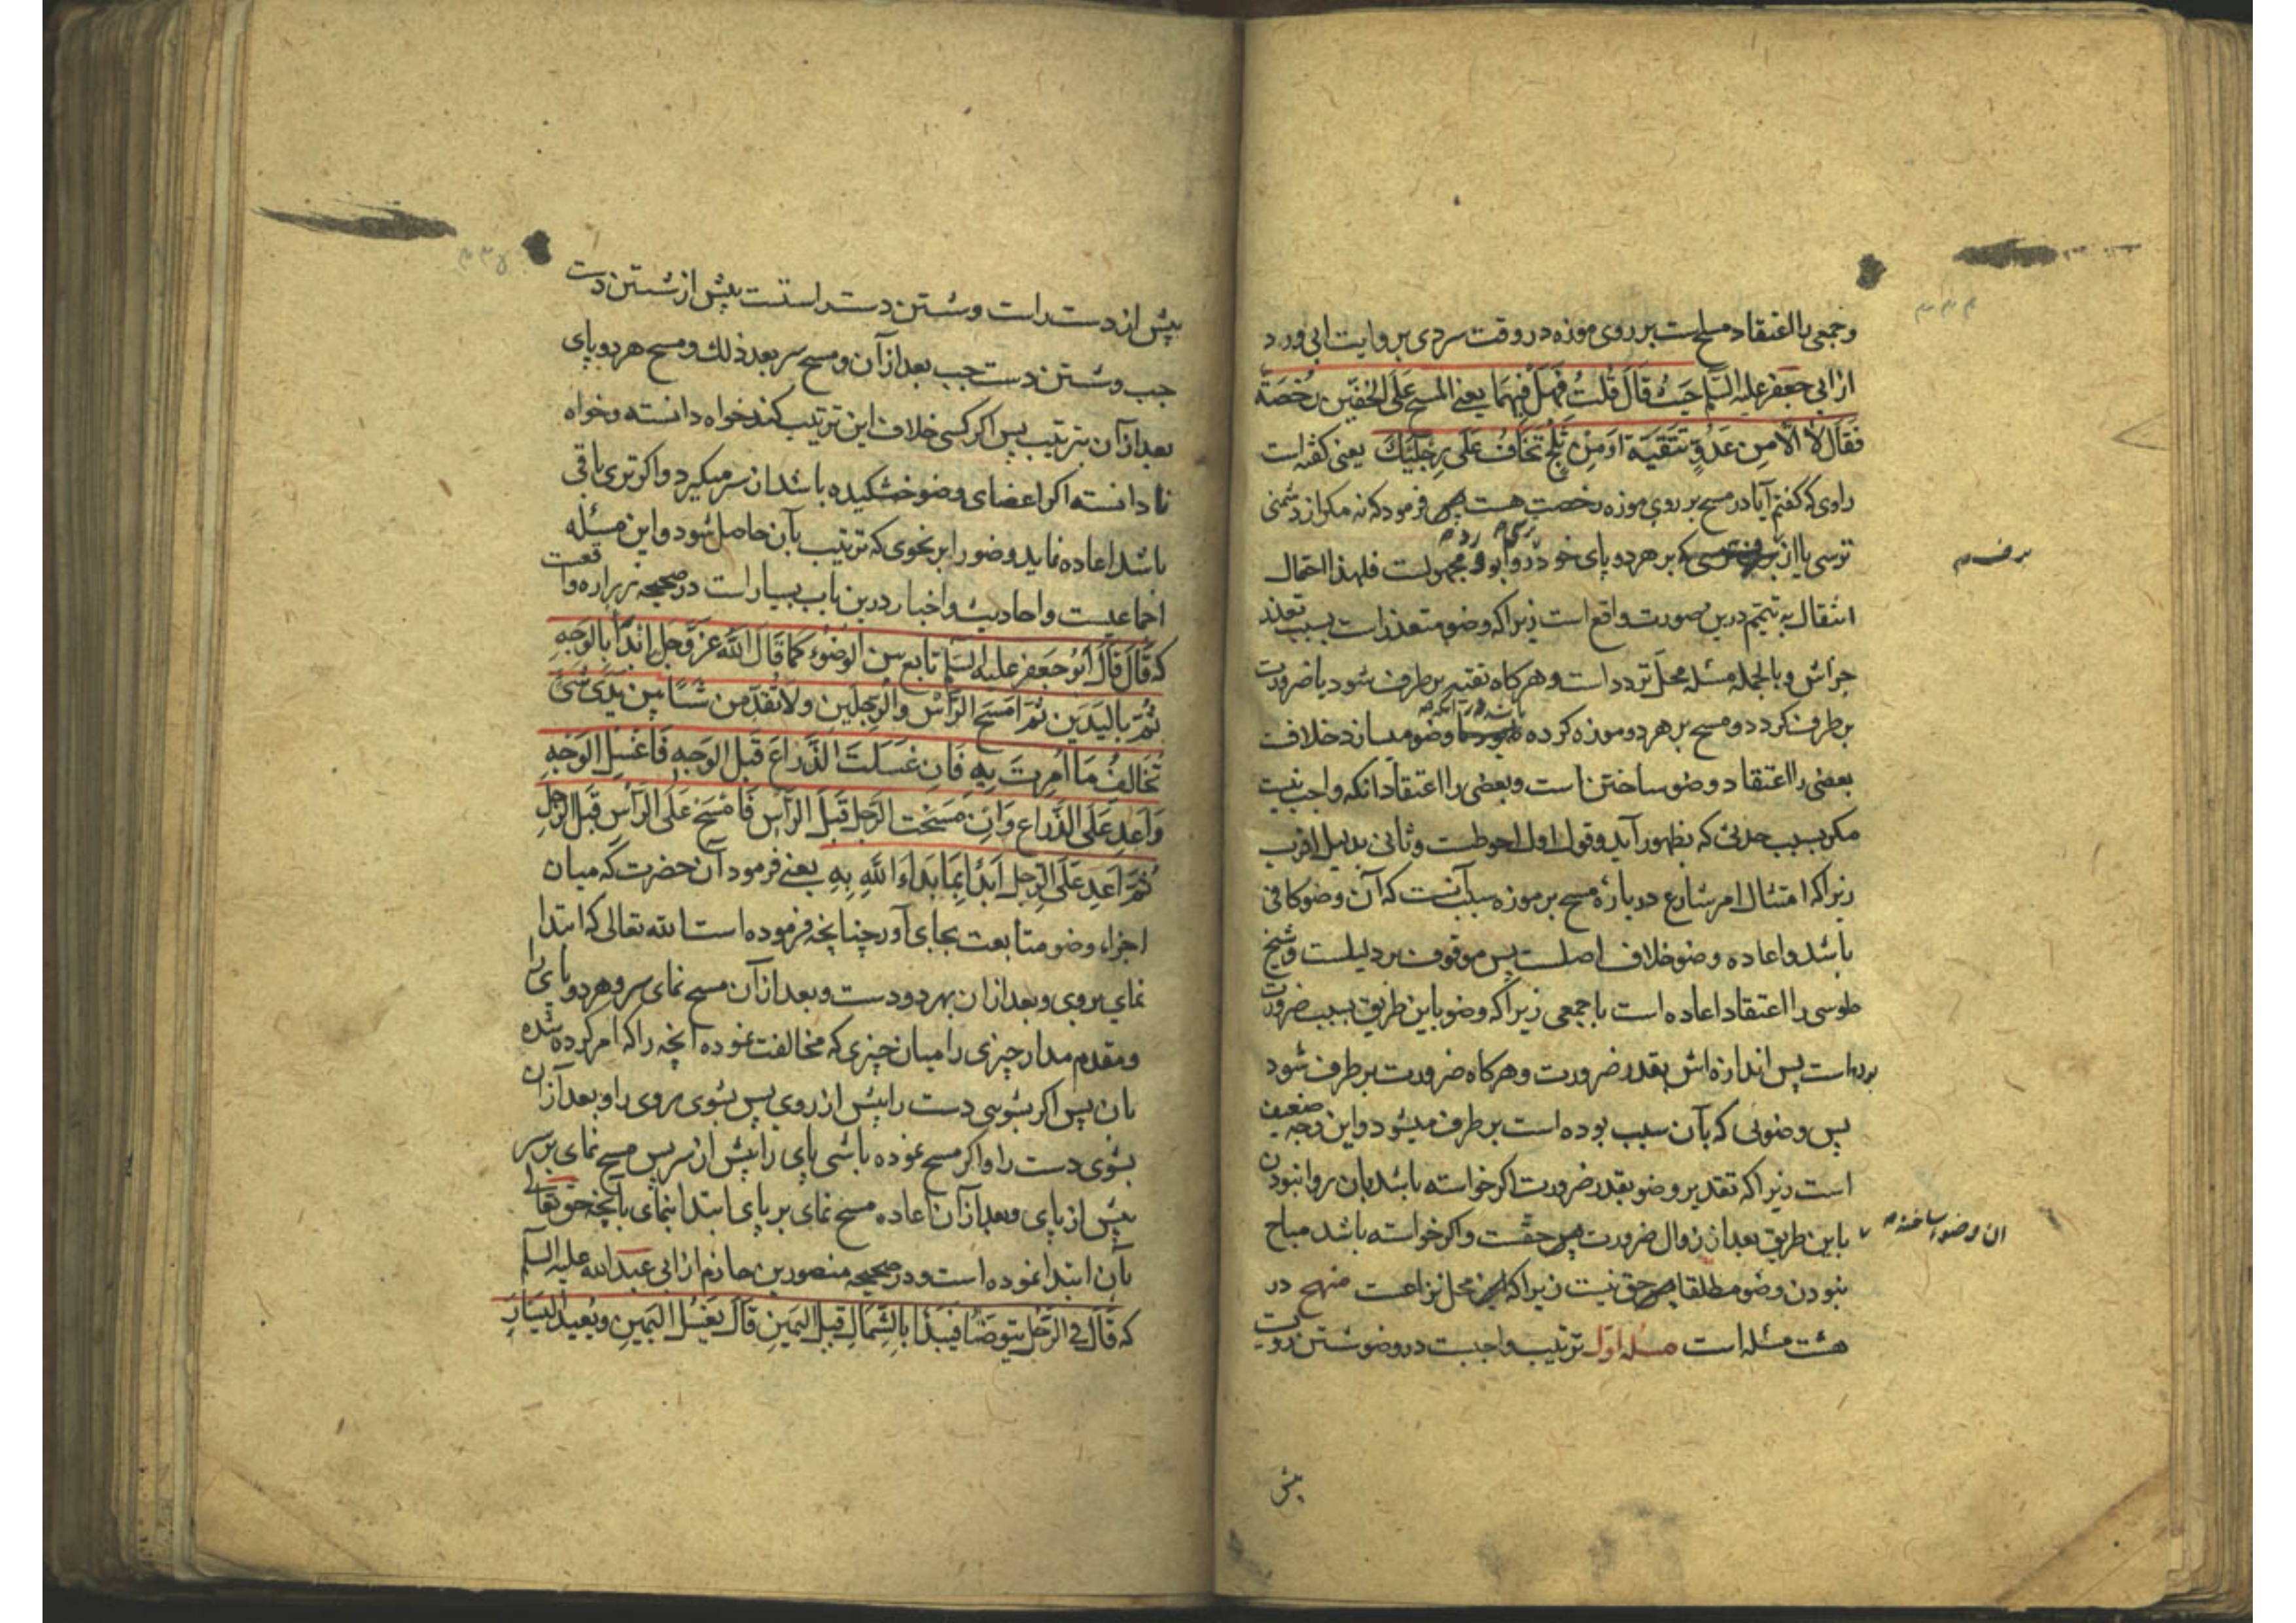 وجمعی را اعتقاد مسح است بر روی موزه در وقت سردی بروایت ابی ورد
از ابی جعفر علیه السلم حیث قال قلت فهل فیهما یعنی المسح علی الخفین رخصة
فقال لا الا من عدو تتقیه او من ثلج تخاف علی رجلیک یعنی کفته است
راوی که کفتم آیا در مسح بر روی موزه رخصت هست فرمود که نه مکر از دشمنی
ترسی یا از که بر هر دو پای خود و ابو ورد مجهولست فلهذا احتمال
برف م
انتقال به تیمم درین صورت واقع است زیرا که وضو متعذر است بسبب تعذر
جزأش و بالجمله مسئله محل تردد است و هرکاه تقیه بر طرف شود یا ضرورت
بر طرف کردد و مسح بر هر دو موزه کرده باشد در آنکه وضو میسازد خلافست
بعضی را اعتقاد وضو ساختن است و بعضی را اعتقاد آنکه واجب نیست
مکر بسبب حدثی که بظهور آید و قول اول احوطست و ثانی بدلیل اقرب
زیرا که امتثال امر شارع در باره مسح بر موزه سبب آنست که آن وضو کافی
باشد و اعاده وضو خلاف اصلست پس موقوف بر دلیلست و شیخ
طوسی را اعتقاد اعاده است با جمعی زیرا که وضو باین طریق بسبب ضرورت
بوده است پس اندازه اش بقدر ضرورت و هرکاه ضرورت بر طرف شود
پس وضوئی که بآن سبب بوده است بر طرف میشود و این وجه ضعیف
است زیرا که تقدیر وضو بقدر ضرورت اکر خواسته باشد بان روا نبودن
آن وضوء ساختن
باین طریق بعد از زوال ضرورت حقست و اکر خواسته باشد مباح
نبودن وضو مطلقا حق نیست زیرا که محل نزاعست منهج در
هشت مسئله است مسئله اول ترتیب واجبست در وضو شستن رویست
پیش
پیش از دست راست و شستن دست راستست پیش از شستن دست
چپ و شستن دست چپ بعد از آن و مسح سر بعد ذلک و مسح هر دو پای
بعد از آن بترتیب پس اکر کسی خلاف این ترتیب کند خواه دانسته و خواه
نادانسته اکر اعضای وضو خشکیده باشد از سر میکیرد و اکر تری باقی
باشد اعاده نماید وضو را بر نحوی که ترتیب بآن حاصل شود و این مسئله
اجماعیست و احادیث و اخبار درین باب بسیار است در صحیحه زراره واقعست
که قال قال ابو جعفر علیه السلم تابع بین الوضوء کما قال الله عز و جل ابدأ بالوجه
ثم بالیدین ثم امسح الرأس والرجلین ولا تقدمن شیئا بین یدی شیء
تخالف ما امرت به فان غسلت الذراع قبل الوجه فاغسل الوجه
واعد علی الذراع وان مسحت الرجل قبل الرأس فامسح علی الرأس قبل الرجل
ثم اعد علی الرجل ابدأ بما بدأ الله به یعنی فرمود آن حضرت که میان
اجزاء وضو متابعت بجای آور چنانچه فرموده است الله تعالی که ابتدا
نمای بروی و بعد از ان بهر دو دست و بعد از آن مسح نمای سر و هر دو پای را
و مقدم مدار چیزی را میان چیزی که مخالفت نموده آنچه را که امر کرده شده
بان پس اکر بشوئی دست را پیش از روی پس بشوی روی را و بعد از آن
بشوی دست را و اکر مسح نموده باشی پای را پیش از سر پس مسح نمای بر سر
پیش از پای و بعد از آن اعاده مسح نمای بر پای ابتدا بنمای بآنچه حق تعالی
بآن ابتدا نموده است و در صحیحه منصور بن حازم از ابی عبد الله علیه السلم
که قال فی الرجل یتوضأ فیبدأ بالشمال قبل الیمین قال یغسل الیمین ویعید الیسار